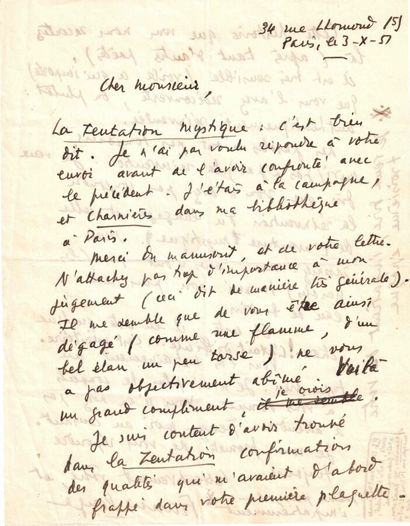 34 rue Lhomond (5)
Paris, le 3-X-51
Cher Monsieur,
La Tentation mystique : c'est bien
dit. Je n'ai pas voulu répondre à votre
envoi avant de l'avoir confronté avec
le précédent. J'étais à la campagne,
et Charnières dans ma bibliothèque
à Paris.
Merci du manuscrit, et de votre lettre.
N'attachez pas trop d'importance à mon
jugement (ceci dit de manière très générale).
Il me semble que de vous être ainsi
dégagé (comme une flamme, d'un
bel élan un peu torse) ne vous
a pas objectivement abîmé. Voilà
un grand compliment, je crois
il me semble.
Je suis content d'avoir trouvé
dans la Tentation confirmation
des qualités qui m'avaient d'abord
frappé dans votre première plaquette.